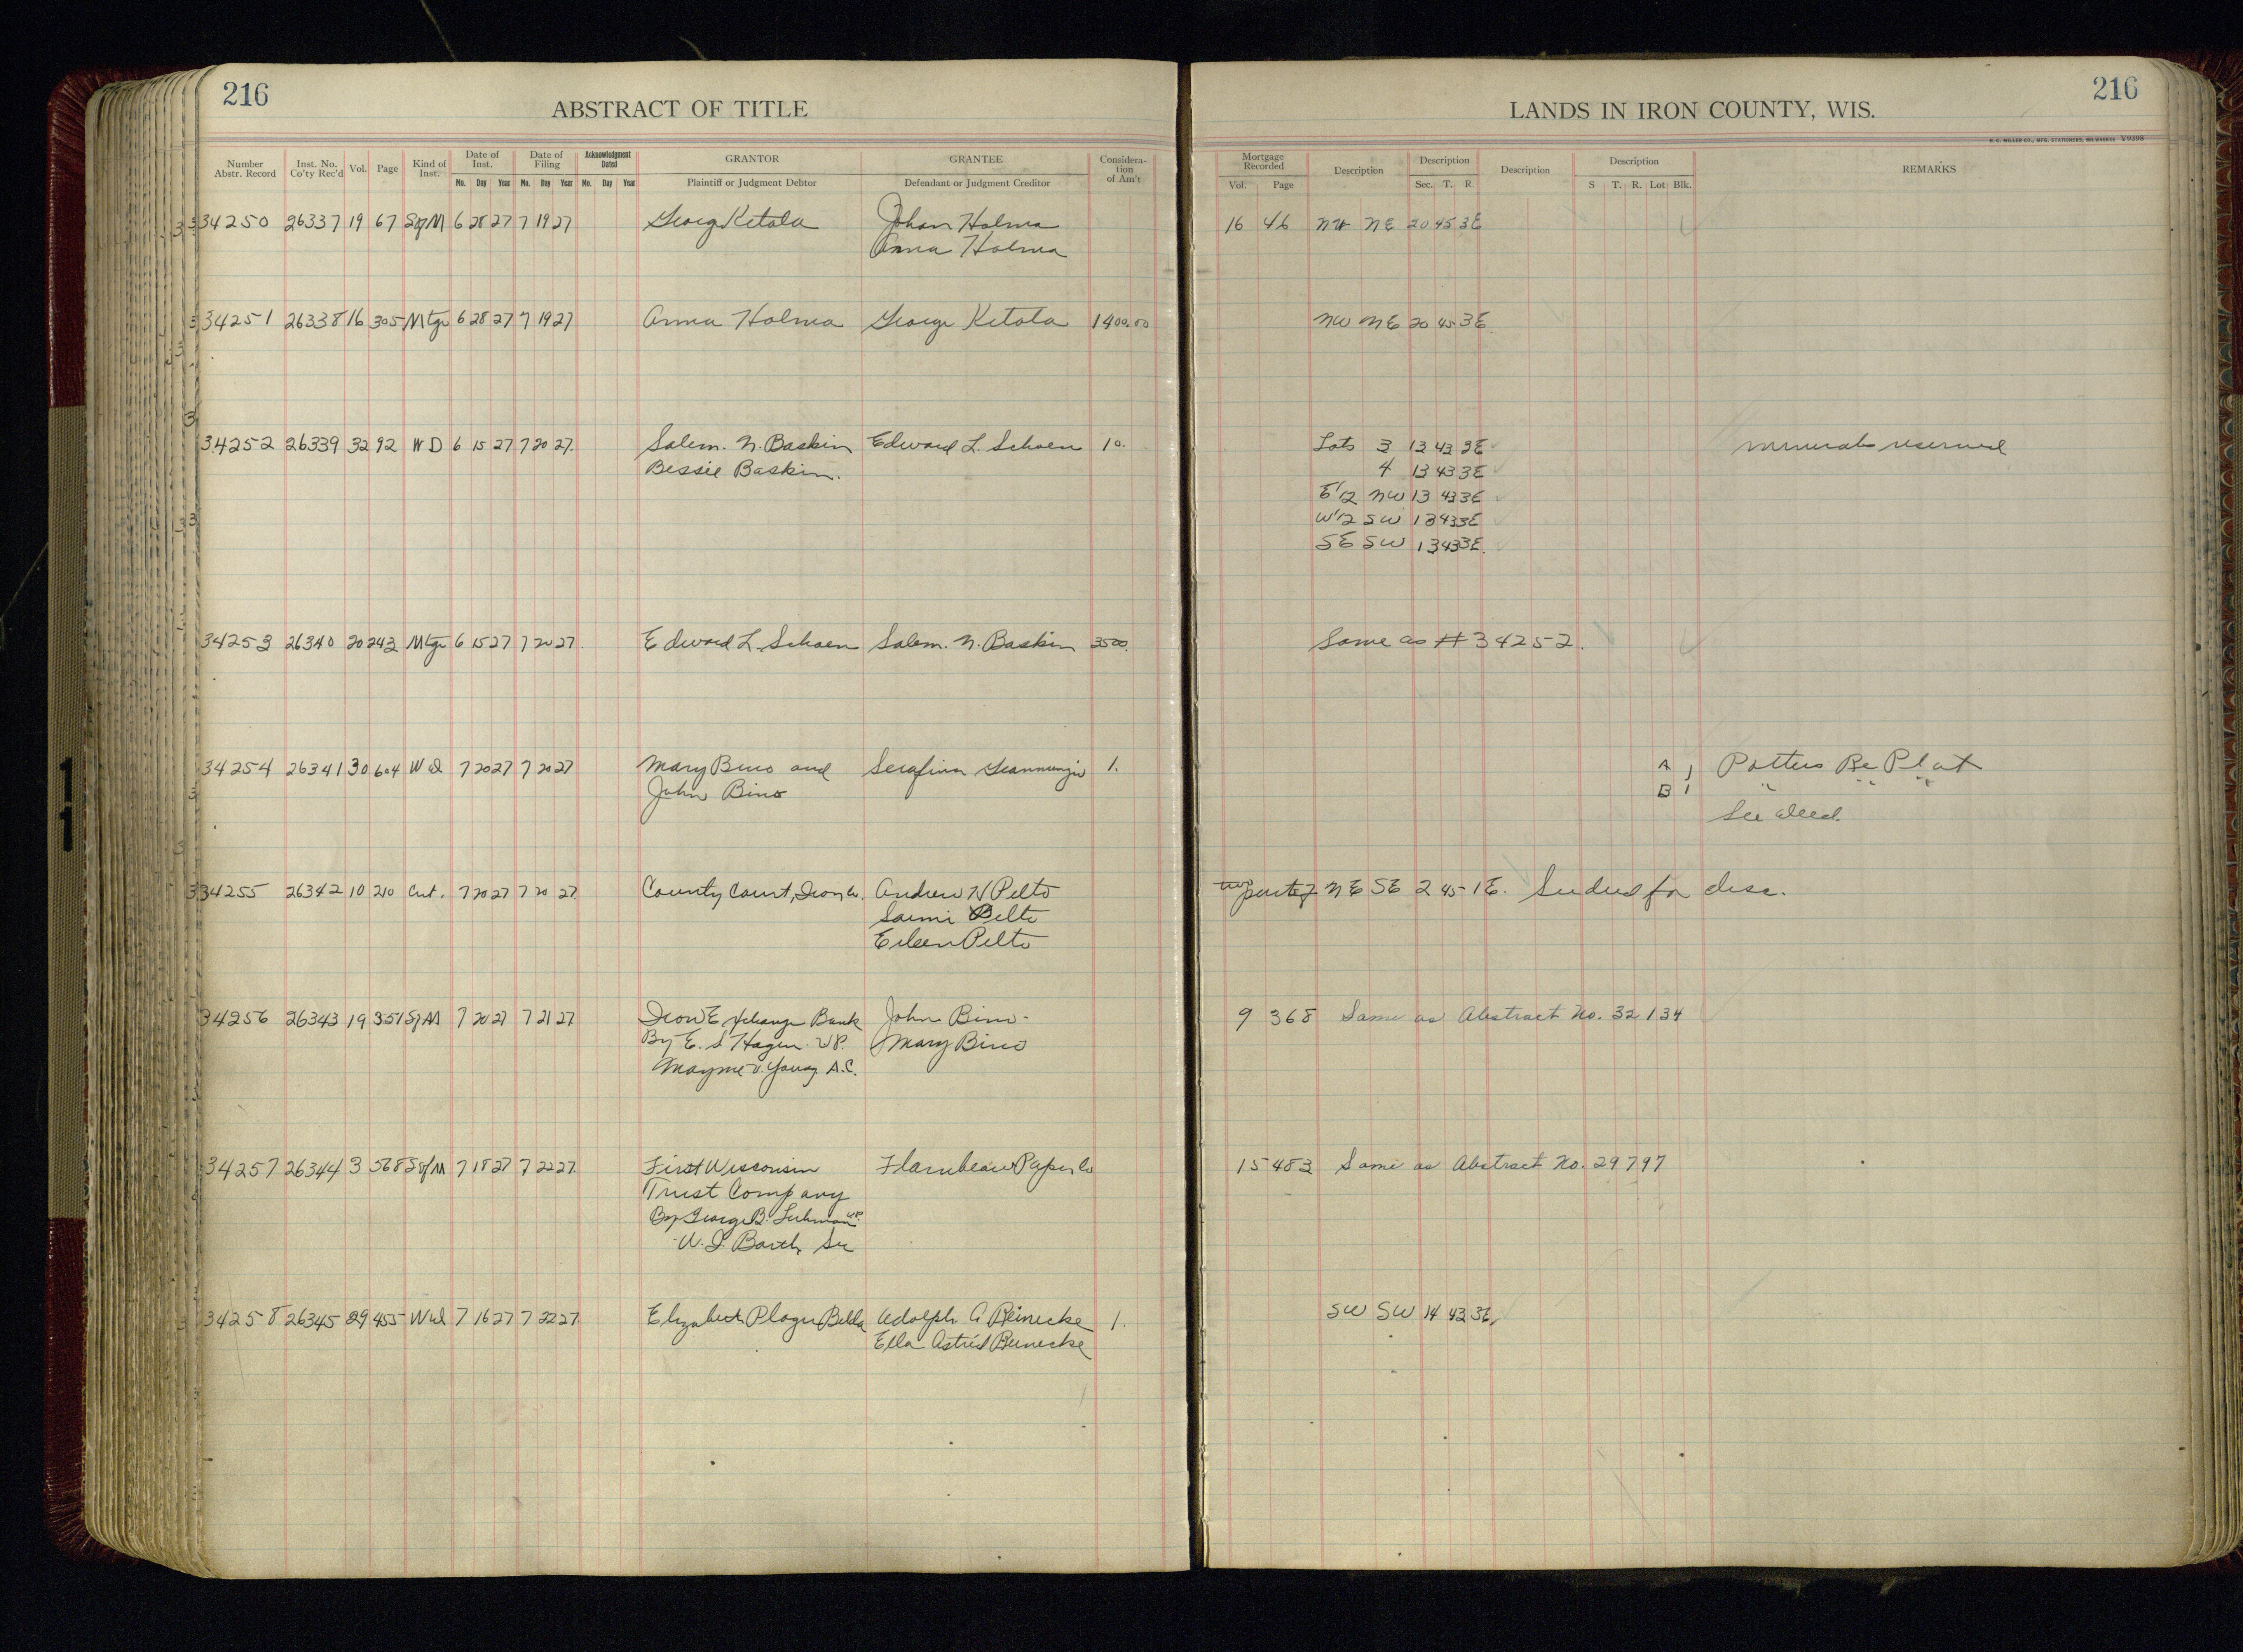 216
ABSTRACT OF TITLE
Number Abstr. Record Inst. No. Co'ty Rec'd Vol. Page Kind of Inst. Date of Inst. Date of Filing Acknowledgment Dated GRANTOR GRANTEE Considera-tion of Am't
Mo. Day Year Mo. Day Year Mo. Day Year Plaintiff or Judgment Debtor Defendant or Judgment Creditor
34250 26337 19 67 Sg M 6 28 27 7 19 27 George Ketola Johan Holma
Anna Holma
34251 26338 16 305 Mtge 6 28 27 7 19 27 Anna Holma George Ketola 1400.00
34252 26339 32 92 W D 6 15 27 7 20 27 Salem. N. Baskin Edward L. Schoen 10.
Bessie Baskin.
34253 26340 20 243 Mtge 6 15 27 7 20 27 Edward L. Schoen Salem. N. Baskin 3500.
34254 26341 30 604 W d 7 20 27 7 20 27 Mary Bino and Serafina Giannunzio 1.
John Bino
34255 26342 10 210 Cert. 7 20 27 7 20 27 County Court, Iron Co. Andrew N Pelto
Saimi Pelto
Eileen Pelto
34256 26343 19 351 Sg M 7 20 27 7 21 27 Iron Exchange Bank John Bino
By E. S. Hagen V P. Mary Bino
Mayme V. Young A.C.
34257 26344 3 568 Sg M 7 18 27 7 22 27 First Wisconsin Flambeau Paper Co
Trust Company
By George B. Luhman VP.
W. I. Barth Sec
34258 26345 29 455 Wd 7 16 27 7 22 27 Elizabeth Plogu Belda Adolph A Reinecke 1.
Ella Astrid Reinecke
LANDS IN IRON COUNTY, WIS.
216
H. C. MILLER CO., MFG. STATIONERS, MILWAUKEE V9398
Mortgage Recorded Description Description Description Description REMARKS
Vol. Page Sec. T. R. S T. R. Lot Blk.
16 46 NW NE 20 45 3E
NW NE 20 45 3E
Lots 3 13 43 3E minerals reserved
4 13 43 3E
E1/2 NW 13 43 3E
W1/2 SW 13 43 3E
SE SW 13 43 3E
Same as #34252.
A 1 Potters Re Plat
B 1 " " "
See deed.
part of NE SE 2 45 1E. See deed for desc.
9 368 Same as Abstract No. 32134
15 483 Same as Abstract No. 29797
SW SW 14 43 3E